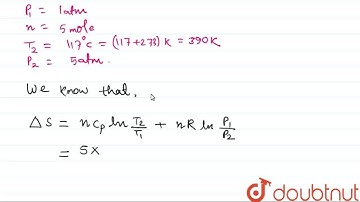 P₁ = 1atm
n = 5 mole
T₂ = 117°C = (117+273) K = 390K
P₂ = 5atm.
We know that,
ΔS = n Cp ln T₂/T₁ + nR ln P₁/P₂
= 5×
doubtnut